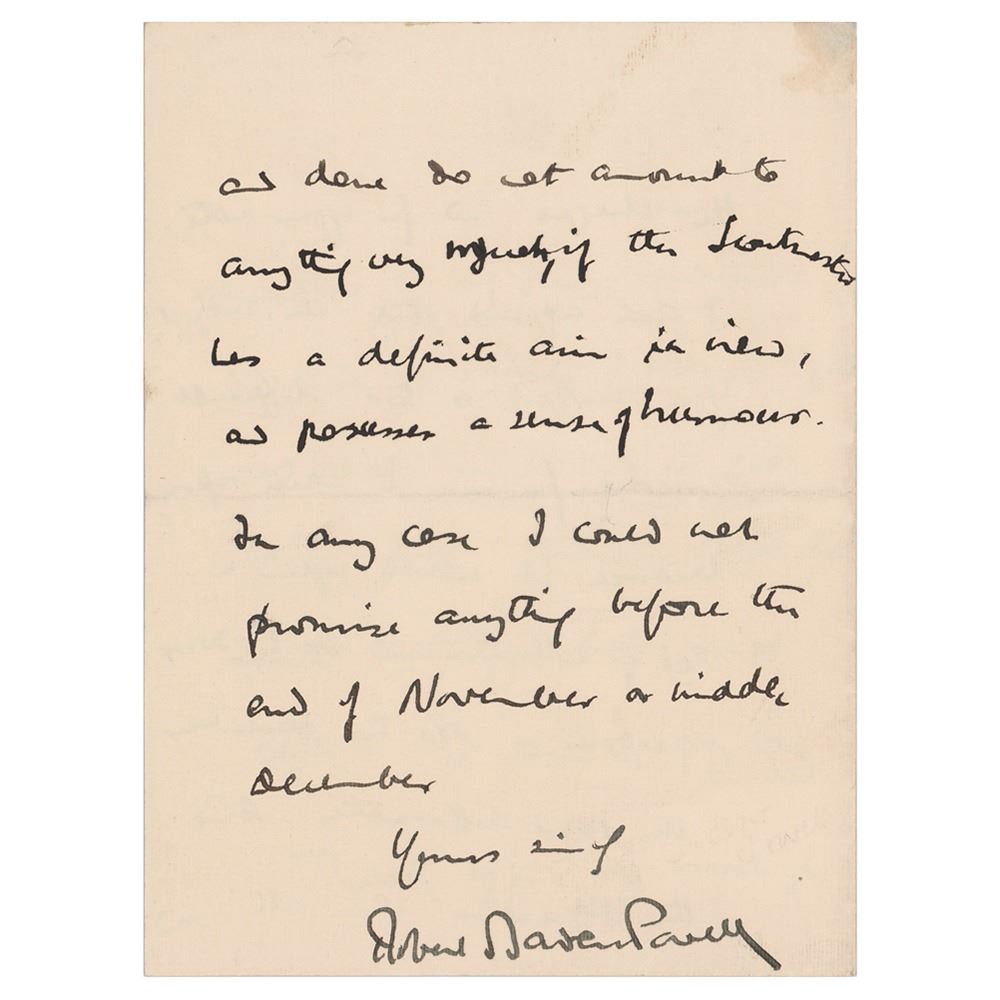 and done do not amount to
anything very much, if the Scoutmaster
has a definite aim in view,
and possesses a sense of humour.
In any case I could not
promise anything before the
end of November or middle
December
Yours sincly
Robert Baden Powell